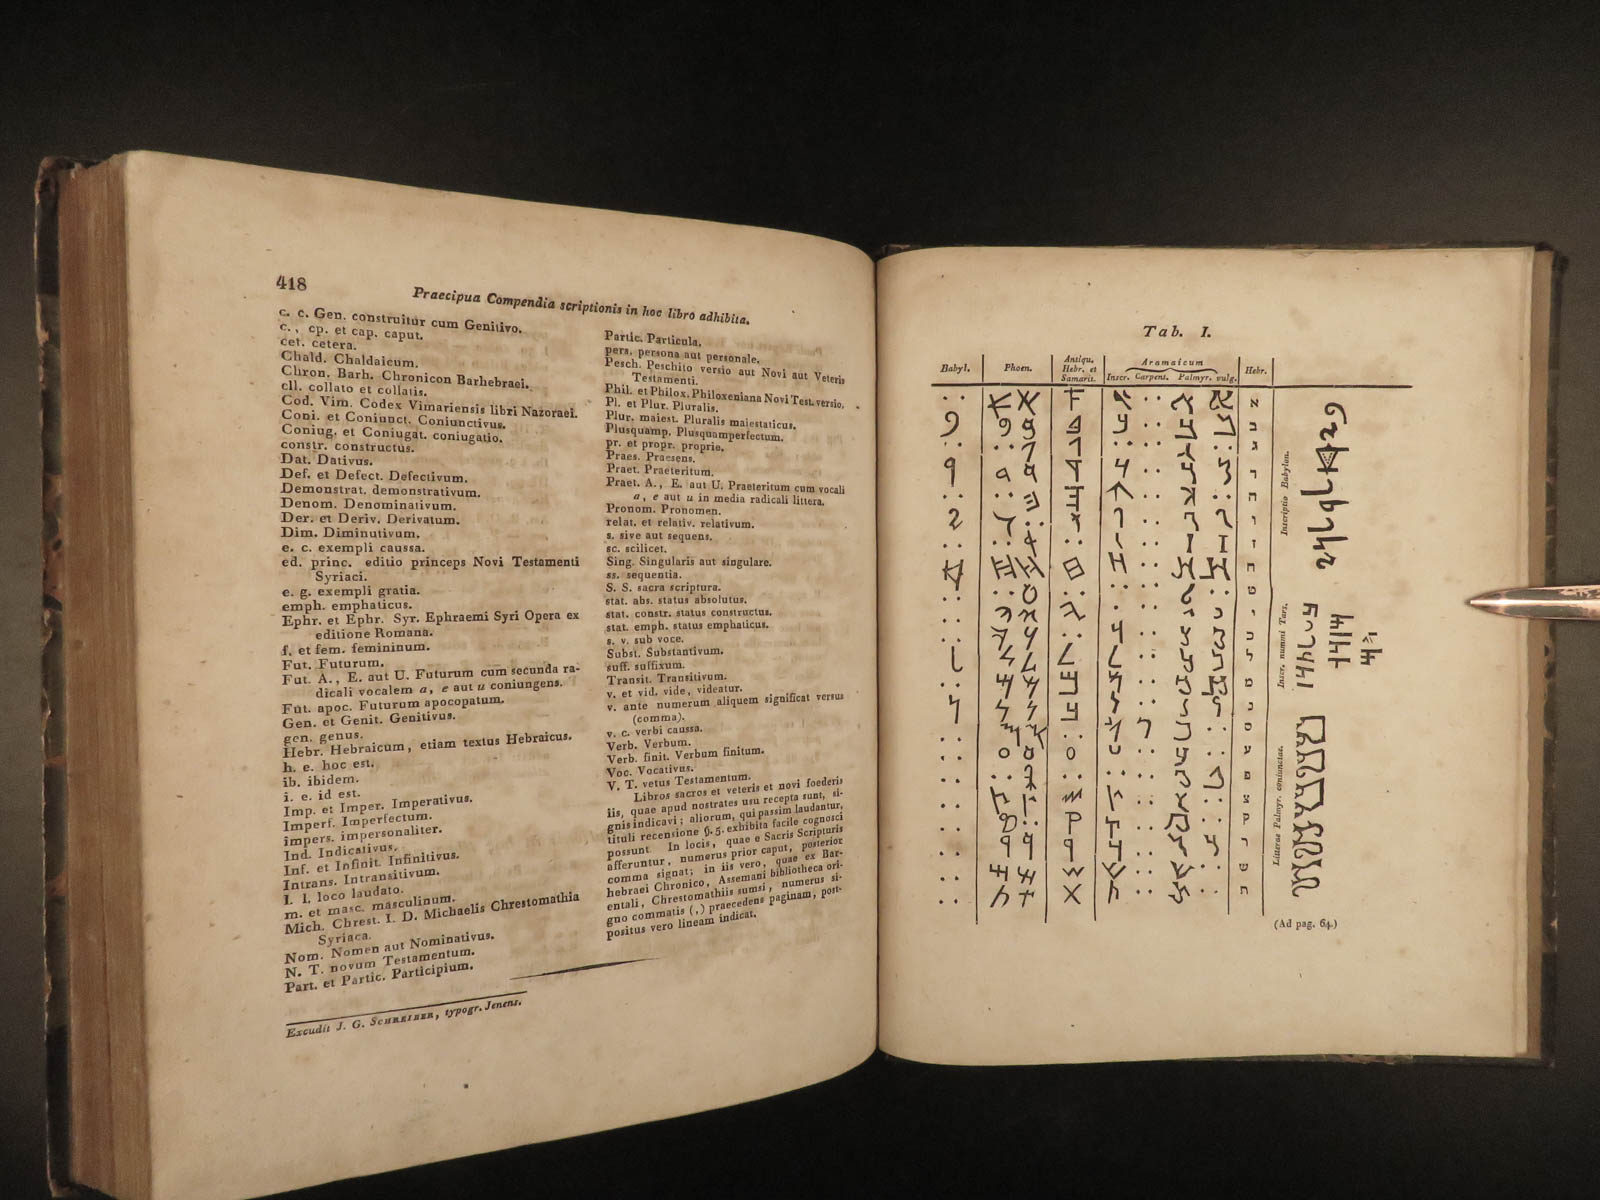 418
Praecipua Compendia scriptionis in hoc libro adhibita.
c. c. Gen. construitur cum Genitivo.
c., cp. et cap. caput.
cet. cetera.
Chald. Chaldaicum.
Chron. Barh. Chronicon Barhebraei.
cll. collato et collatis.
Cod. Vim. Codex Vimariensis libri Nazoraei.
Coni. et Coniunct. Coniunctivus.
Coniug. et Coniugat. coniugatio.
constr. constructus.
Dat. Dativus.
Def. et Defect. Defectivum.
Demonstrat. demonstrativum.
Denom. Denominativum.
Der. et Deriv. Derivatum.
Dim. Diminutivum.
e. c. exempli caussa.
ed. princ. editio princeps Novi Testamenti
Syriaci.
e. g. exempli gratia.
emph. emphaticus.
Ephr. et Ephr. Syr. Ephraemi Syri Opera ex
editione Romana.
f. et fem. femininum.
Fut. Futurum.
Fut. A., E. aut U. Futurum cum secunda ra-
dicali vocalem a, e aut u coniungens.
Fut. apoc. Futurum apocopatum.
Gen. et Genit. Genitivus.
gen. genus.
Hebr. Hebraicum, etiam textus Hebraicus.
h. e. hoc est.
ib. ibidem.
i. e. id est.
Imp. et Imper. Imperativus.
Imperf. Imperfectum.
impers. impersonaliter.
Ind. Indicativus.
Inf. et Infinit. Infinitivus.
Intrans. Intransitivum.
l. l. loco laudato.
m. et masc. masculinum.
Mich. Chrest. I. D. Michaelis Chrestomathia
Syriaca.
Nom. Nomen aut Nominativus.
N. T. novum Testamentum.
Part. et Partic. Participium.
Partic. Particula.
pers. persona aut personale.
Pesch. Peschito versio aut Novi aut Veteris
Testamenti.
Phil. et Philox. Philoxeniana Novi Test. versio.
Pl. et Plur. Pluralis.
Plur. maiest. Pluralis maiestaticus.
Plusquamp. Plusquamperfectum.
pr. et propr. proprie.
Praes. Praesens.
Praet. Praeteritum.
Praet. A., E. aut U. Praeteritum cum vocali
a, e aut u in media radicali littera.
Pronom. Pronomen.
relat. et relativ. relativum.
s. sive aut sequens.
sc. scilicet.
Sing. Singularis aut singulare.
ss. sequentia.
S. S. sacra scriptura.
stat. abs. status absolutus.
stat. constr. status constructus.
stat. emph. status emphaticus.
s. v. sub voce.
Subst. Substantivum.
suff. suffixum.
Transit. Transitivum.
v. et vid. vide, videatur.
v. ante numerum aliquem significat versus
(comma).
v. c. verbi caussa.
Verb. Verbum.
Verb. finit. Verbum finitum.
Voc. Vocativus.
V. T. vetus Testamentum.
Libros sacros et veteris et novi foederis
iis, quae apud nostrates usu recepta sunt, si-
gnis indicavi; aliorum, qui passim laudantur,
tituli recensione §. 5. exhibita facile cognosci
possunt. In locis, quae e Sacris Scripturis
afferuntur, numerus prior caput, posterior
comma signat; in iis vero, quae ex Bar-
hebraei Chronico, Assemani bibliotheca ori-
entali, Chrestomathiis sumsi, numerus si-
gno commatis (,) praecedens paginam, post-
positus vero lineam indicat.
Excudit J. G. SCHREIBER, typogr. Jenens.
Tab. I.
Babyl. Phoen. Antiqu. Hebr. et Samarit. Aramaicum Hebr.
Inscr. Carpent. Palmyr. vulg.
א
ב
ג
ד
ה
ו
ז
ח
ט
י
כ
ל
מ
נ
ס
ע
פ
צ
ק
ר
ש
ת
Inscriptio Babylon.
Inscr. nummi Tars.
Litterae Palmyr. coniunctae.
(Ad pag. 64.)